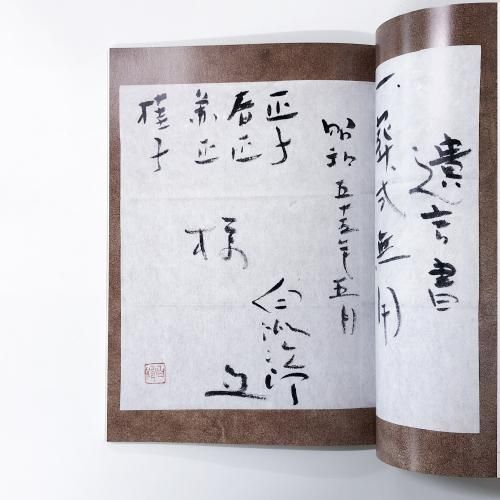 遺言書
一、葬式無用
昭和五十五年五月
白洲次郎
正子
春正
兼正
桂子
様